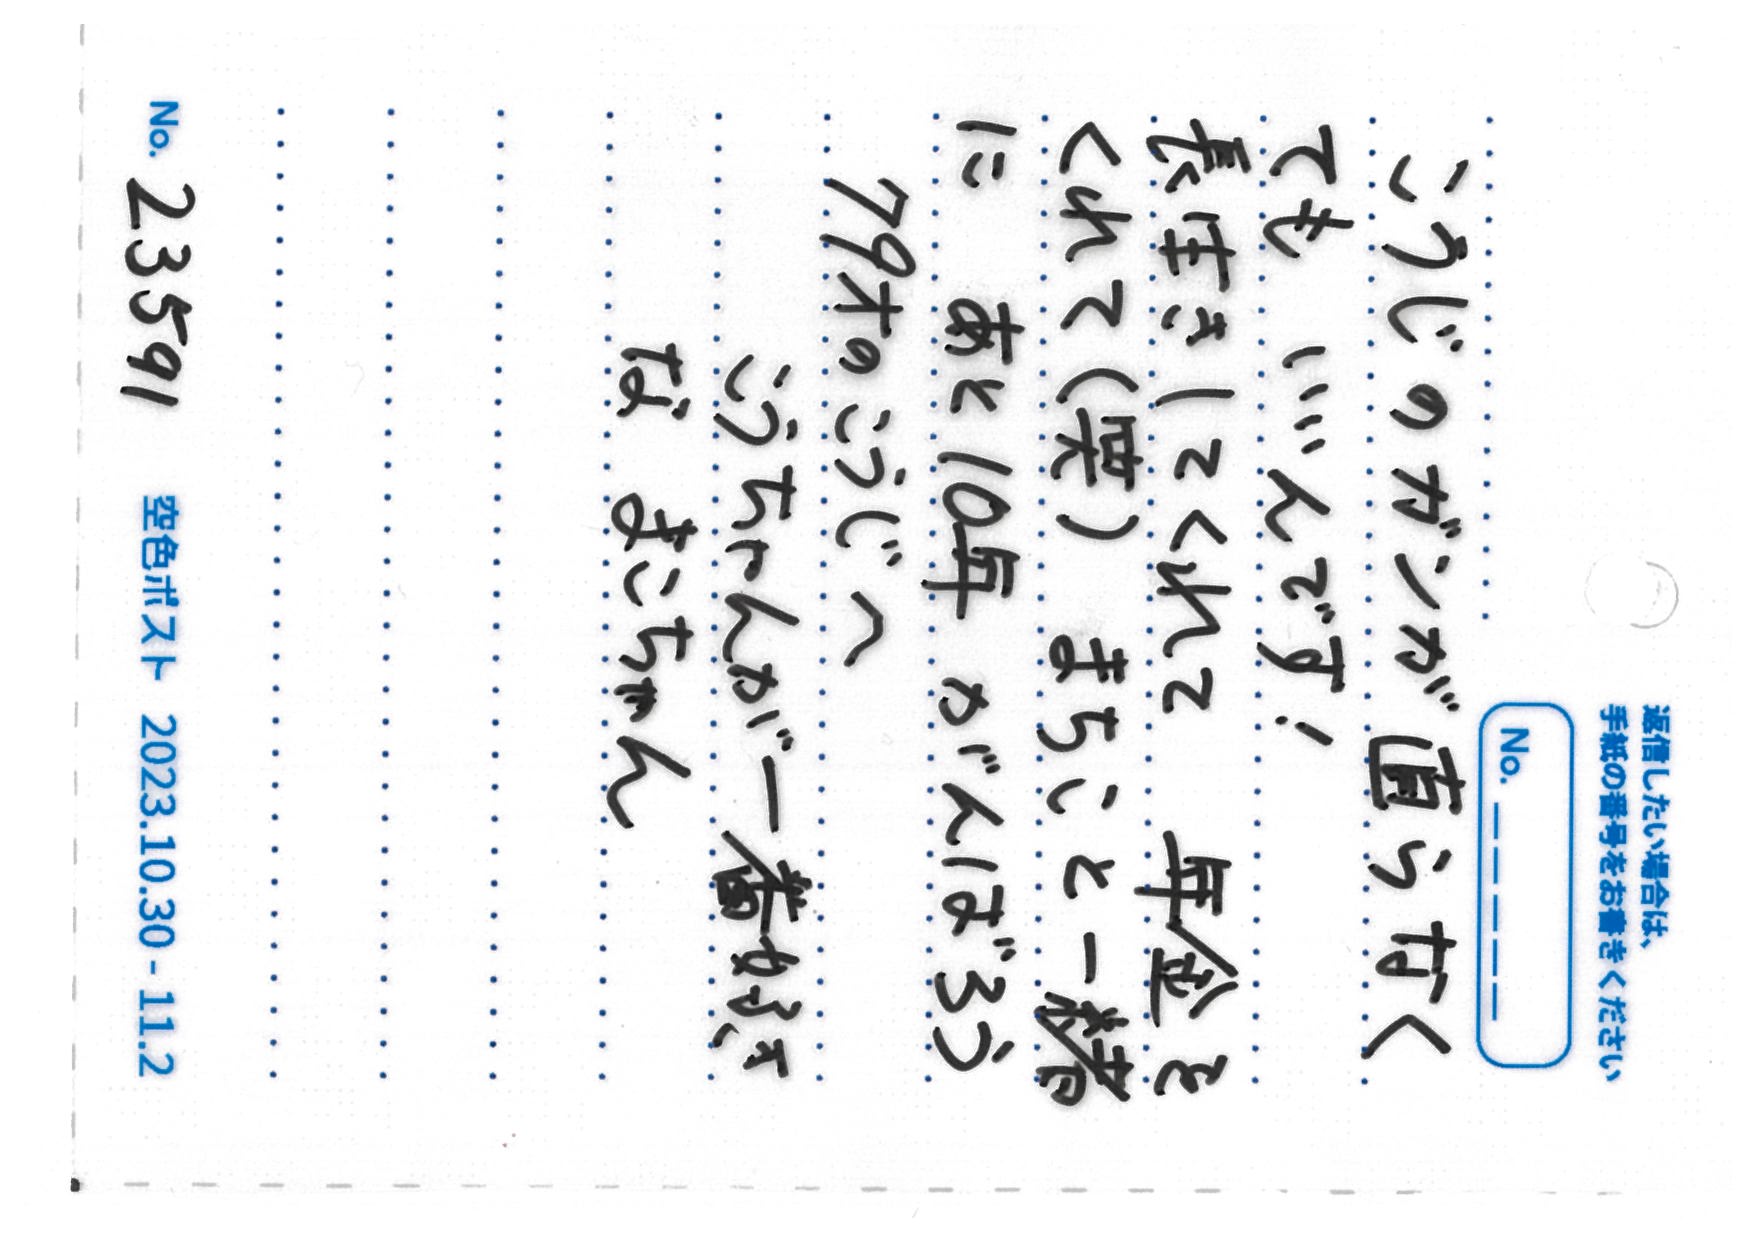 返信したい場合は、
手紙の番号をお書きください
No. _ _ _ _ _
こうじのガンが直らなく
ても いいんです!
長生きしてくれて 年金を
くれて(笑) まちこと一緒
に あと10年 がんばろう
79才のこうじへ
こうちゃんが一番好き
な まこちゃん
No. 23591 空色ポスト 2023.10.30 - 11.2